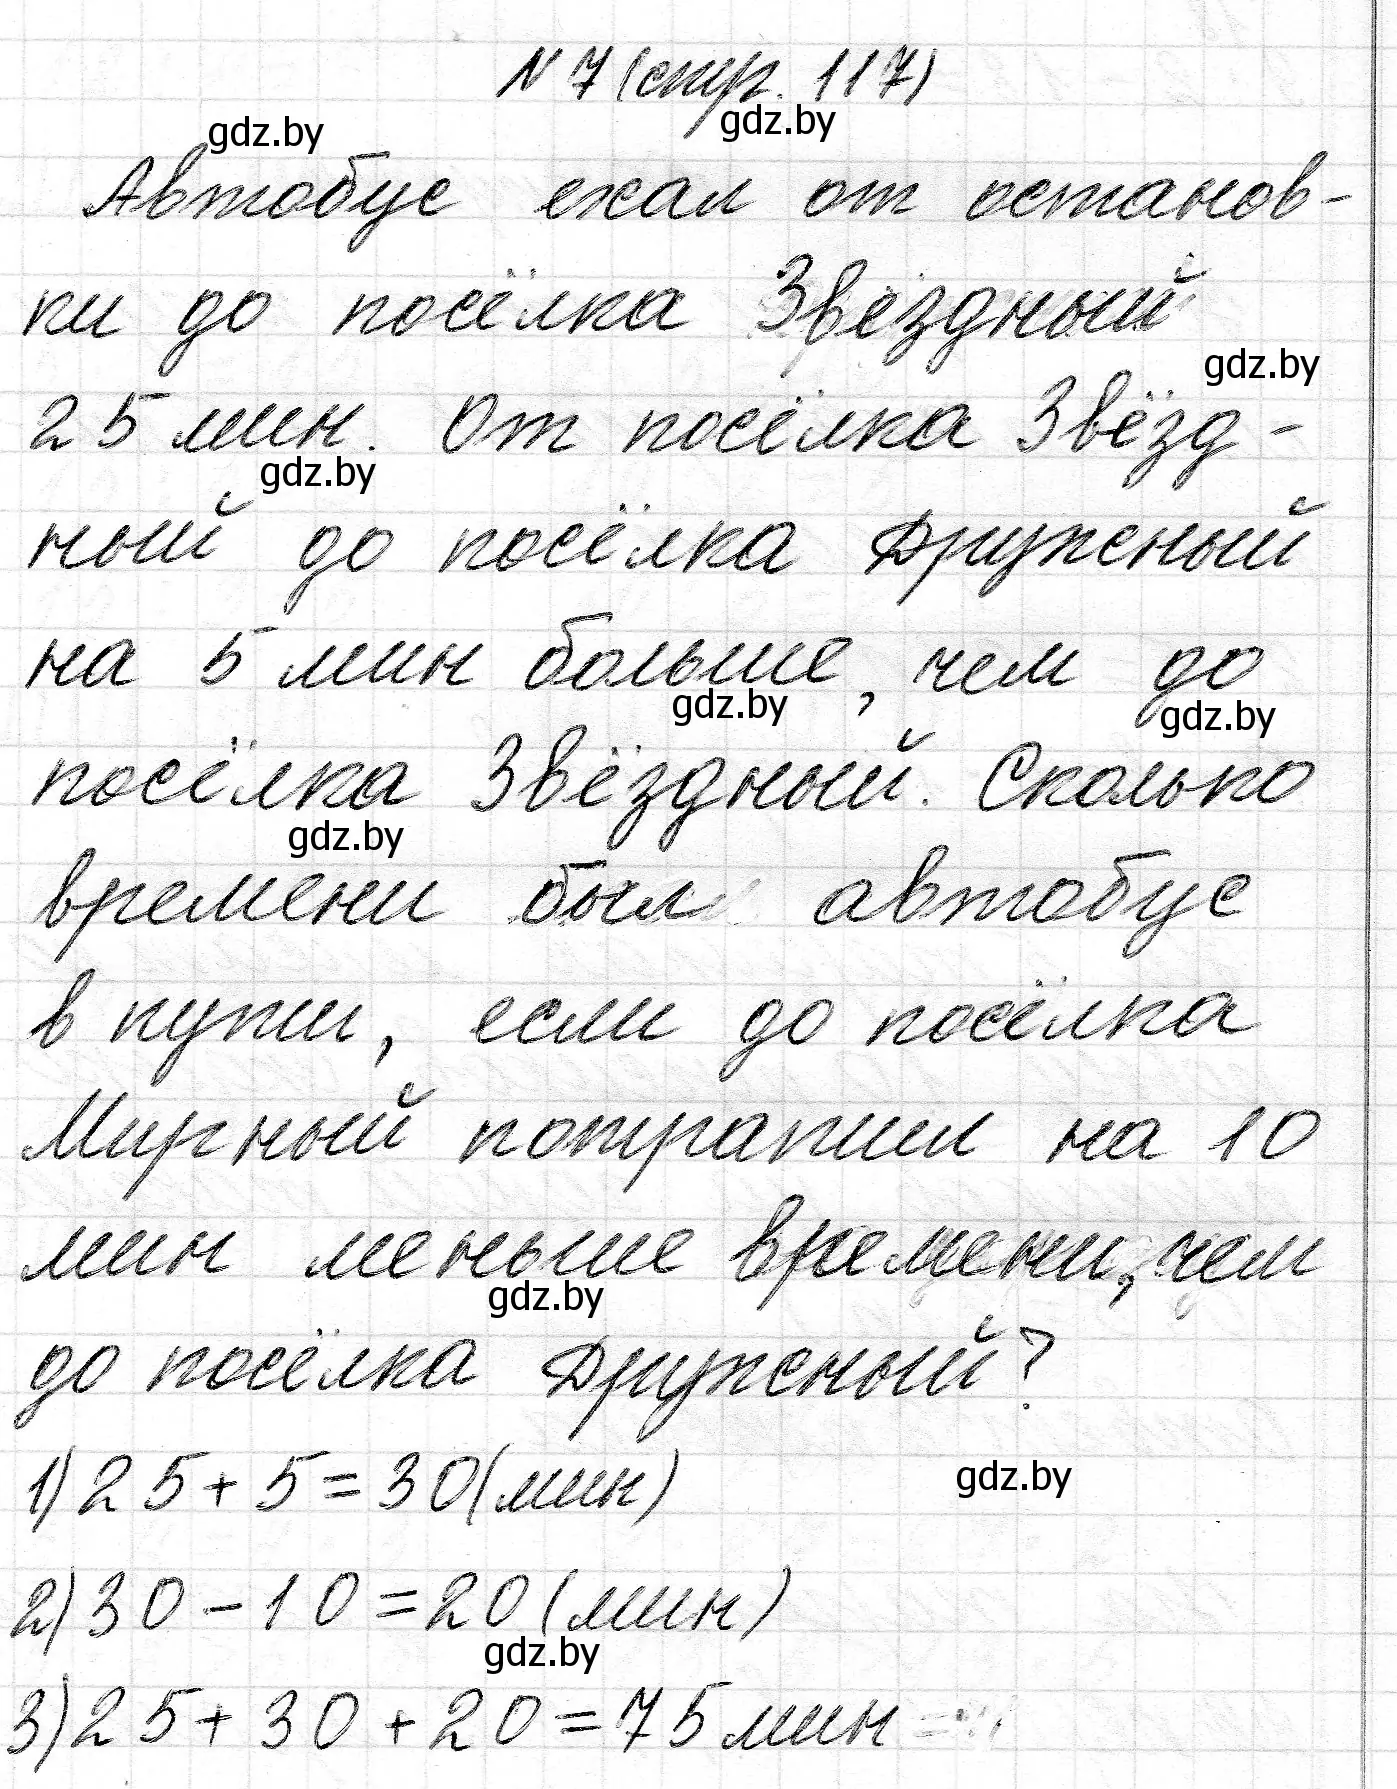 N 7 (стр. 117)
gdz.by
gdz.by
Автобус ехал от останов-
ки до посёлка Звёздный
gdz.by
25 мин. От посёлка Звёзд-
gdz.by
ный до посёлка Дружный
на 5 мин больше, чем до
gdz.by
gdz.by
посёлка Звёздный. Сколько
gdz.by
времени был автобус
в пути, если до посёлка
Мирный потратил на 10
мин меньше времени, чем
gdz.by
до посёлка Дружный?
1) 25 + 5 = 30 (мин)
gdz.by
2) 30 - 10 = 20 (мин)
gdz.by
3) 25 + 30 + 20 = 75 мин